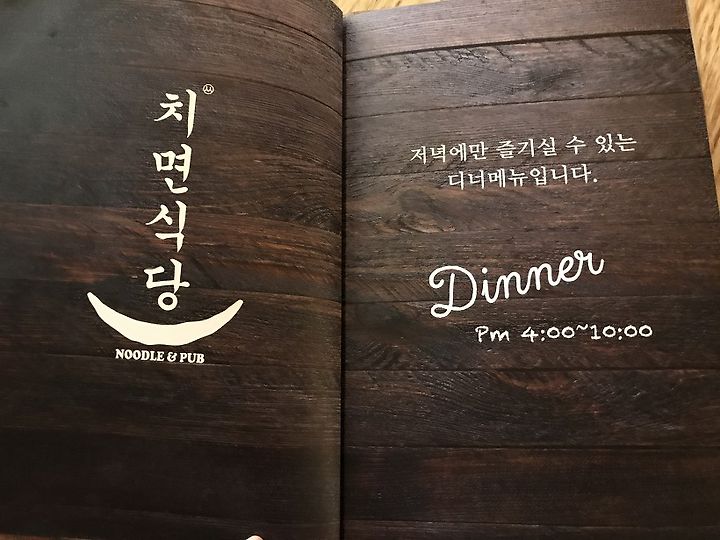 치면식당
NOODLE & PUB
저녁에만 즐기실 수 있는
디너메뉴입니다.
Dinner
Pm 4:00~10:00